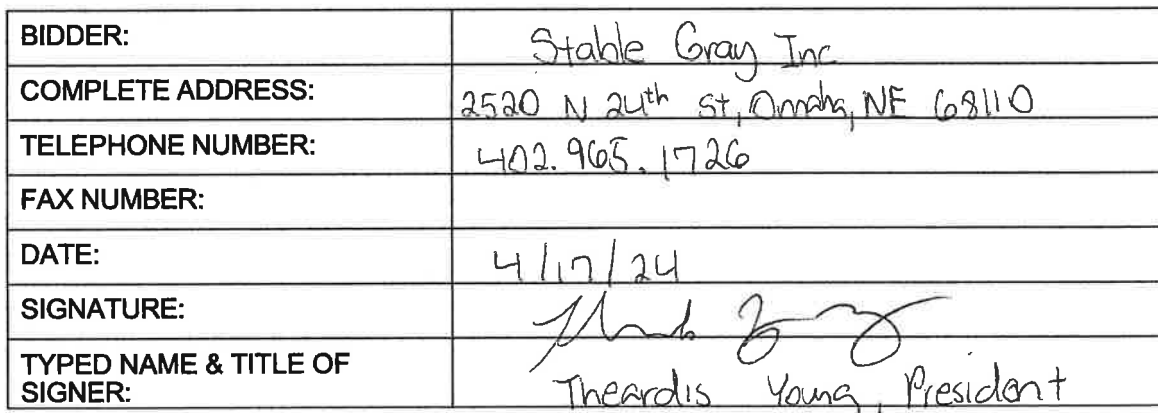 BIDDER: Stable Gray Inc
COMPLETE ADDRESS: 2520 N 24th St, Omaha, NE 68110
TELEPHONE NUMBER: 402.965.1726
FAX NUMBER:
DATE: 4/17/24
SIGNATURE:
TYPED NAME & TITLE OF
SIGNER: Theardis Young, President